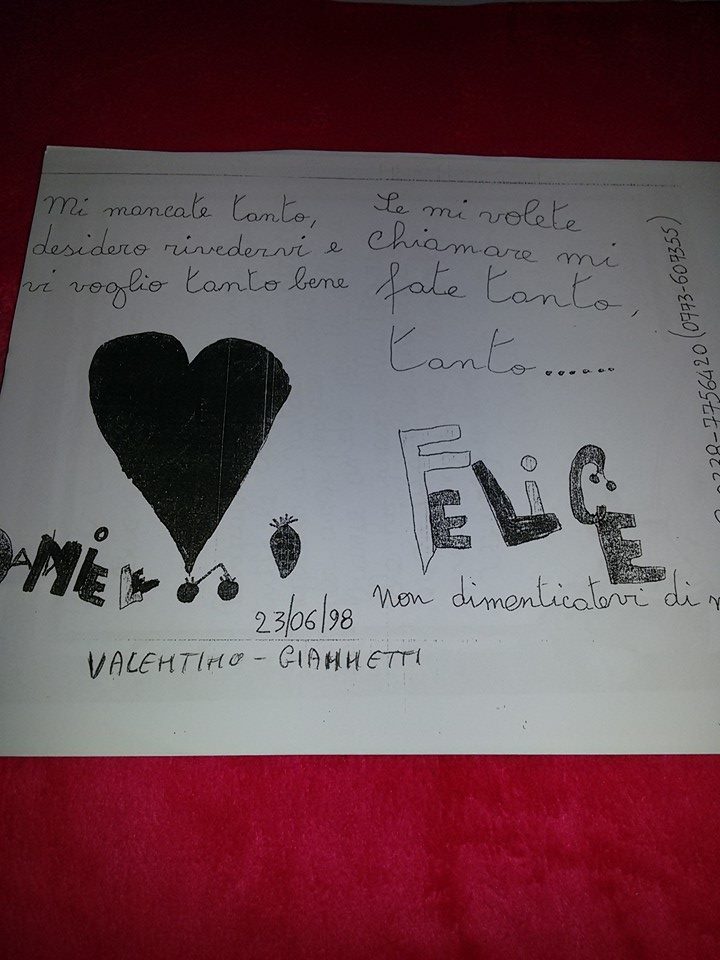 Mi mancate tanto,
desidero rivedervi e
vi voglio tanto bene
DANIELE
23/06/98
VALENTINO - GIANNETTI
Se mi volete
chiamare mi
fate tanto,
tanto......
FELICE
Non dimenticatevi di
0338-7756420 (0773-607355)